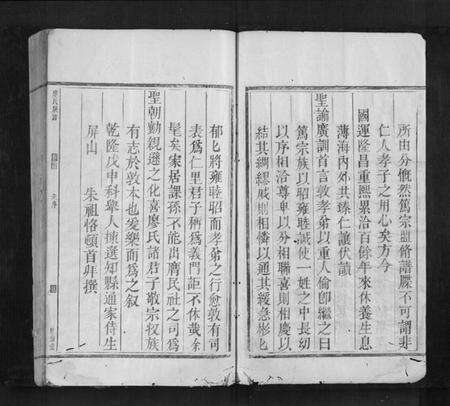 所由分慨然篤宗盟修譜牒不可謂非
仁人孝子之用心矣方今
國運隆昌重熙累洽百餘年來休養生息
薄海內外共臻仁讓伏讀
聖諭廣訓首言敦孝弟以重人倫即繼之曰
篤宗族以昭雍睦誠使一姓之中長幼
以序相洽尊卑以分相聯喜則相慶以
結其綢繆戚則相憐以通其緩急彬彬
郁郁將雍睦昭而孝弟之行愈敦有可
表爲仁里君子栖爲義門詎不休哉余
髦矣家居課孫不能出膺民社之司爲
聖朝勷親遜之化喜廖氏諸君子敬宗收族
有志於敦本也爰樂而爲之叙
乾隆戊申科舉人揀選知縣通家侍生
屏山 朱祖恪頓首拜撰
廖氏族譜